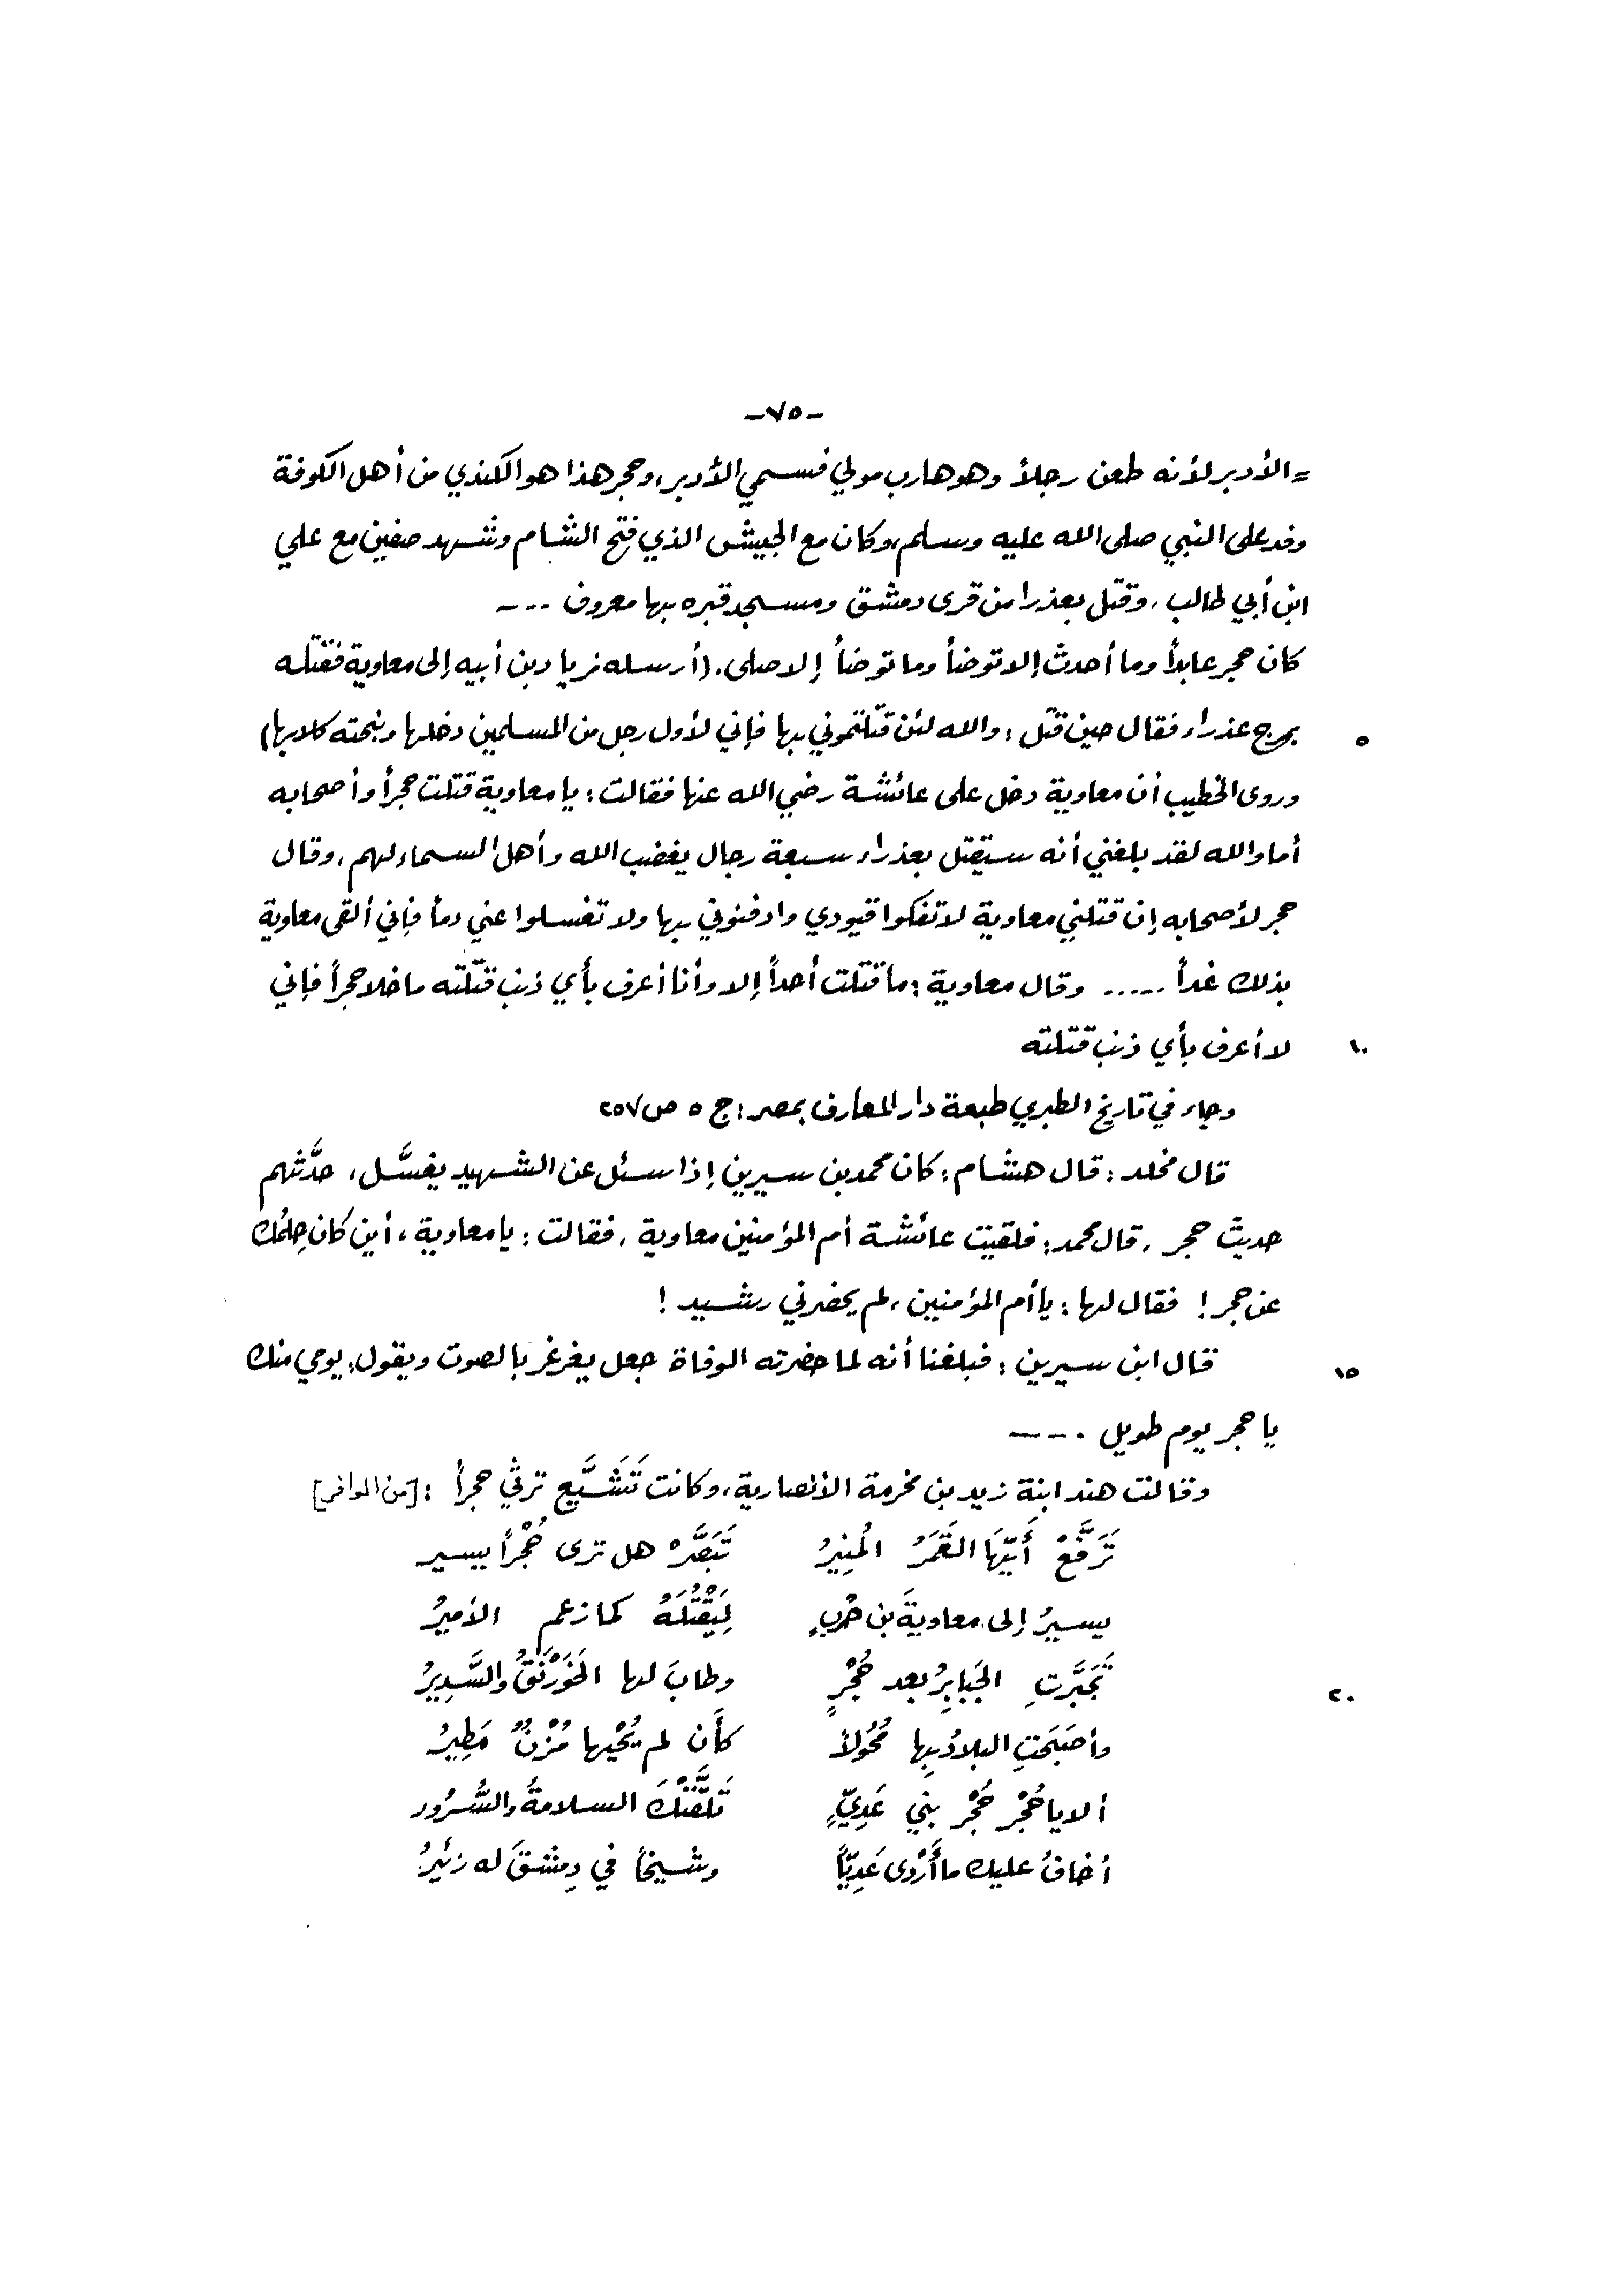 -٧٥-
= الأدبر لأنه طعن رجلاً وهو هارب مولي فسمي الأدبر، وحجر هذا هو الكندي من أهل الكوفة
وفد على النبي صلى الله عليه وسلم، وكان مع الجيش الذي فتح الشام وشهد صفين مع علي
ابن أبي طالب، وقتل بعذرا من قرى دمشق ومسجد قبره بها معروف ---
كان حجر عابداً وما أحدث إلا توضأ وما توضأ إلا صلى. (أرسله زياد بن أبيه إلى معاوية فقتله
بمرج عذراء فقال حين قتل: والله لئن قتلتموني بها فإني لأول رجل من المسلمين دخلها ونبحته كلابها) ٥
وروى الخطيب أن معاوية دخل على عائشة رضي الله عنها فقالت: يا معاوية قتلت حجراً وأصحابه
أما والله لقد بلغني أنه ستقتل بعذراء سبعة رجال يغضب الله وأهل السماء لهم، وقال
حجر لأصحابه إن قتلني معاوية لا تفكوا قيودي وادفنوني بها ولا تغسلوا عني دماً فإني ألقى معاوية
بذلك غداً ..... وقال معاوية: ما قتلت أحداً إلا وأنا أعرف بأي ذنب قتلته ما خلا حجراً فإني
لا أعرف بأي ذنب قتلته ١٠
وجاء في تاريخ الطبري طبعة دار المعارف بمصر: ج ٥ ص ٢٥٧
قال مخلد: قال هشام: كان محمد بن سيرين إذا سئل عن الشهيد يغسَّل، حدَّثهم
حديث حجر، قال محمد: فلقيت عائشة أم المؤمنين معاوية، فقالت: يا معاوية، أين كان حِلمُك
عن حجر! فقال لها: يا أم المؤمنين، لم يحضرني رشيد!
قال ابن سيرين: فبلغنا أنه لما حضرته الوفاة جعل يغرغر بالصوت ويقول: يومي منك ١٥
يا حجر يوم طويل. ---
وقالت هند ابنة زيد بن مخرمة الأنصارية، وكانت تَشَيَّع ترثي حجراً: [من الوافر]
تَرَفَّعْ أَيُّهَا القَمَرُ المُنِيرُ تَبَصَّرْ هل ترى حُجْراً يسير
يسيرُ إلى معاويةَ بن حَرْبٍ لِيَقْتُلَهُ كما زعم الأميرُ
تَجَبَّرَتِ الجَبابِرُ بعد حُجْرٍ وطابَ لها الخَوَرْنَقُ والسَّدِيرُ ٢٠
وأصبَحَتِ البلادُ بِها مُحُولاً كأَن لم يُحْيها مُزْنٌ مَطِيرُ
ألا يا حُجْرُ حُجْرَ بني عَدِيٍّ تَلَقَّتْكَ السلامةُ والسُّرُور
أخافُ عليك ما أَرْدَى عَدِيّاً وشيخاً في دِمشقَ له زئيرُ